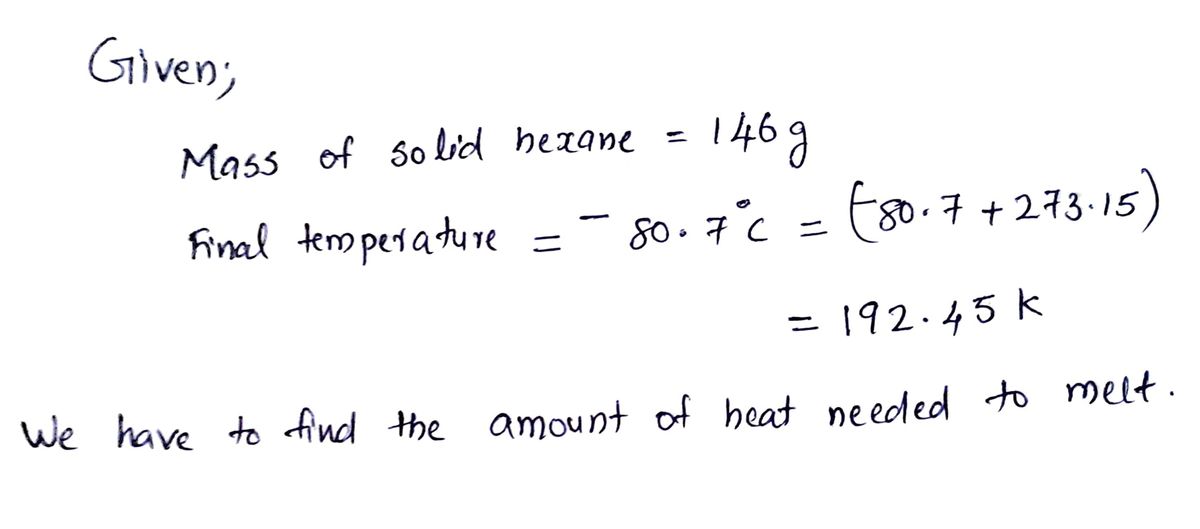 Given;
Mass of solid hexane = 146g
Final temperature = -80.7°C = (-80.7 + 273.15)
= 192.45 k
We have to find the amount of heat needed to melt.